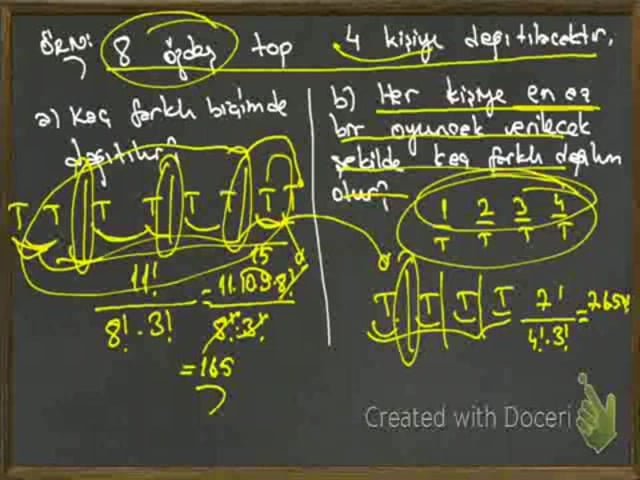 ÖRN: 8 özdeş top 4 kişiye dağıtılacaktır.
a) Kaç farklı biçimde
dağıtılır?
T T T T T T T T
11! / 8! · 3! = 11.10.9.8! / 8! · 3!
15
= 165
b) Her kişiye en az
bir oyuncak verilecek
şekilde kaç farklı dağılım
olur?
1 2 3 4
T T T T
T | T | T | T
7! / 4! · 3! =
Created with Doceri